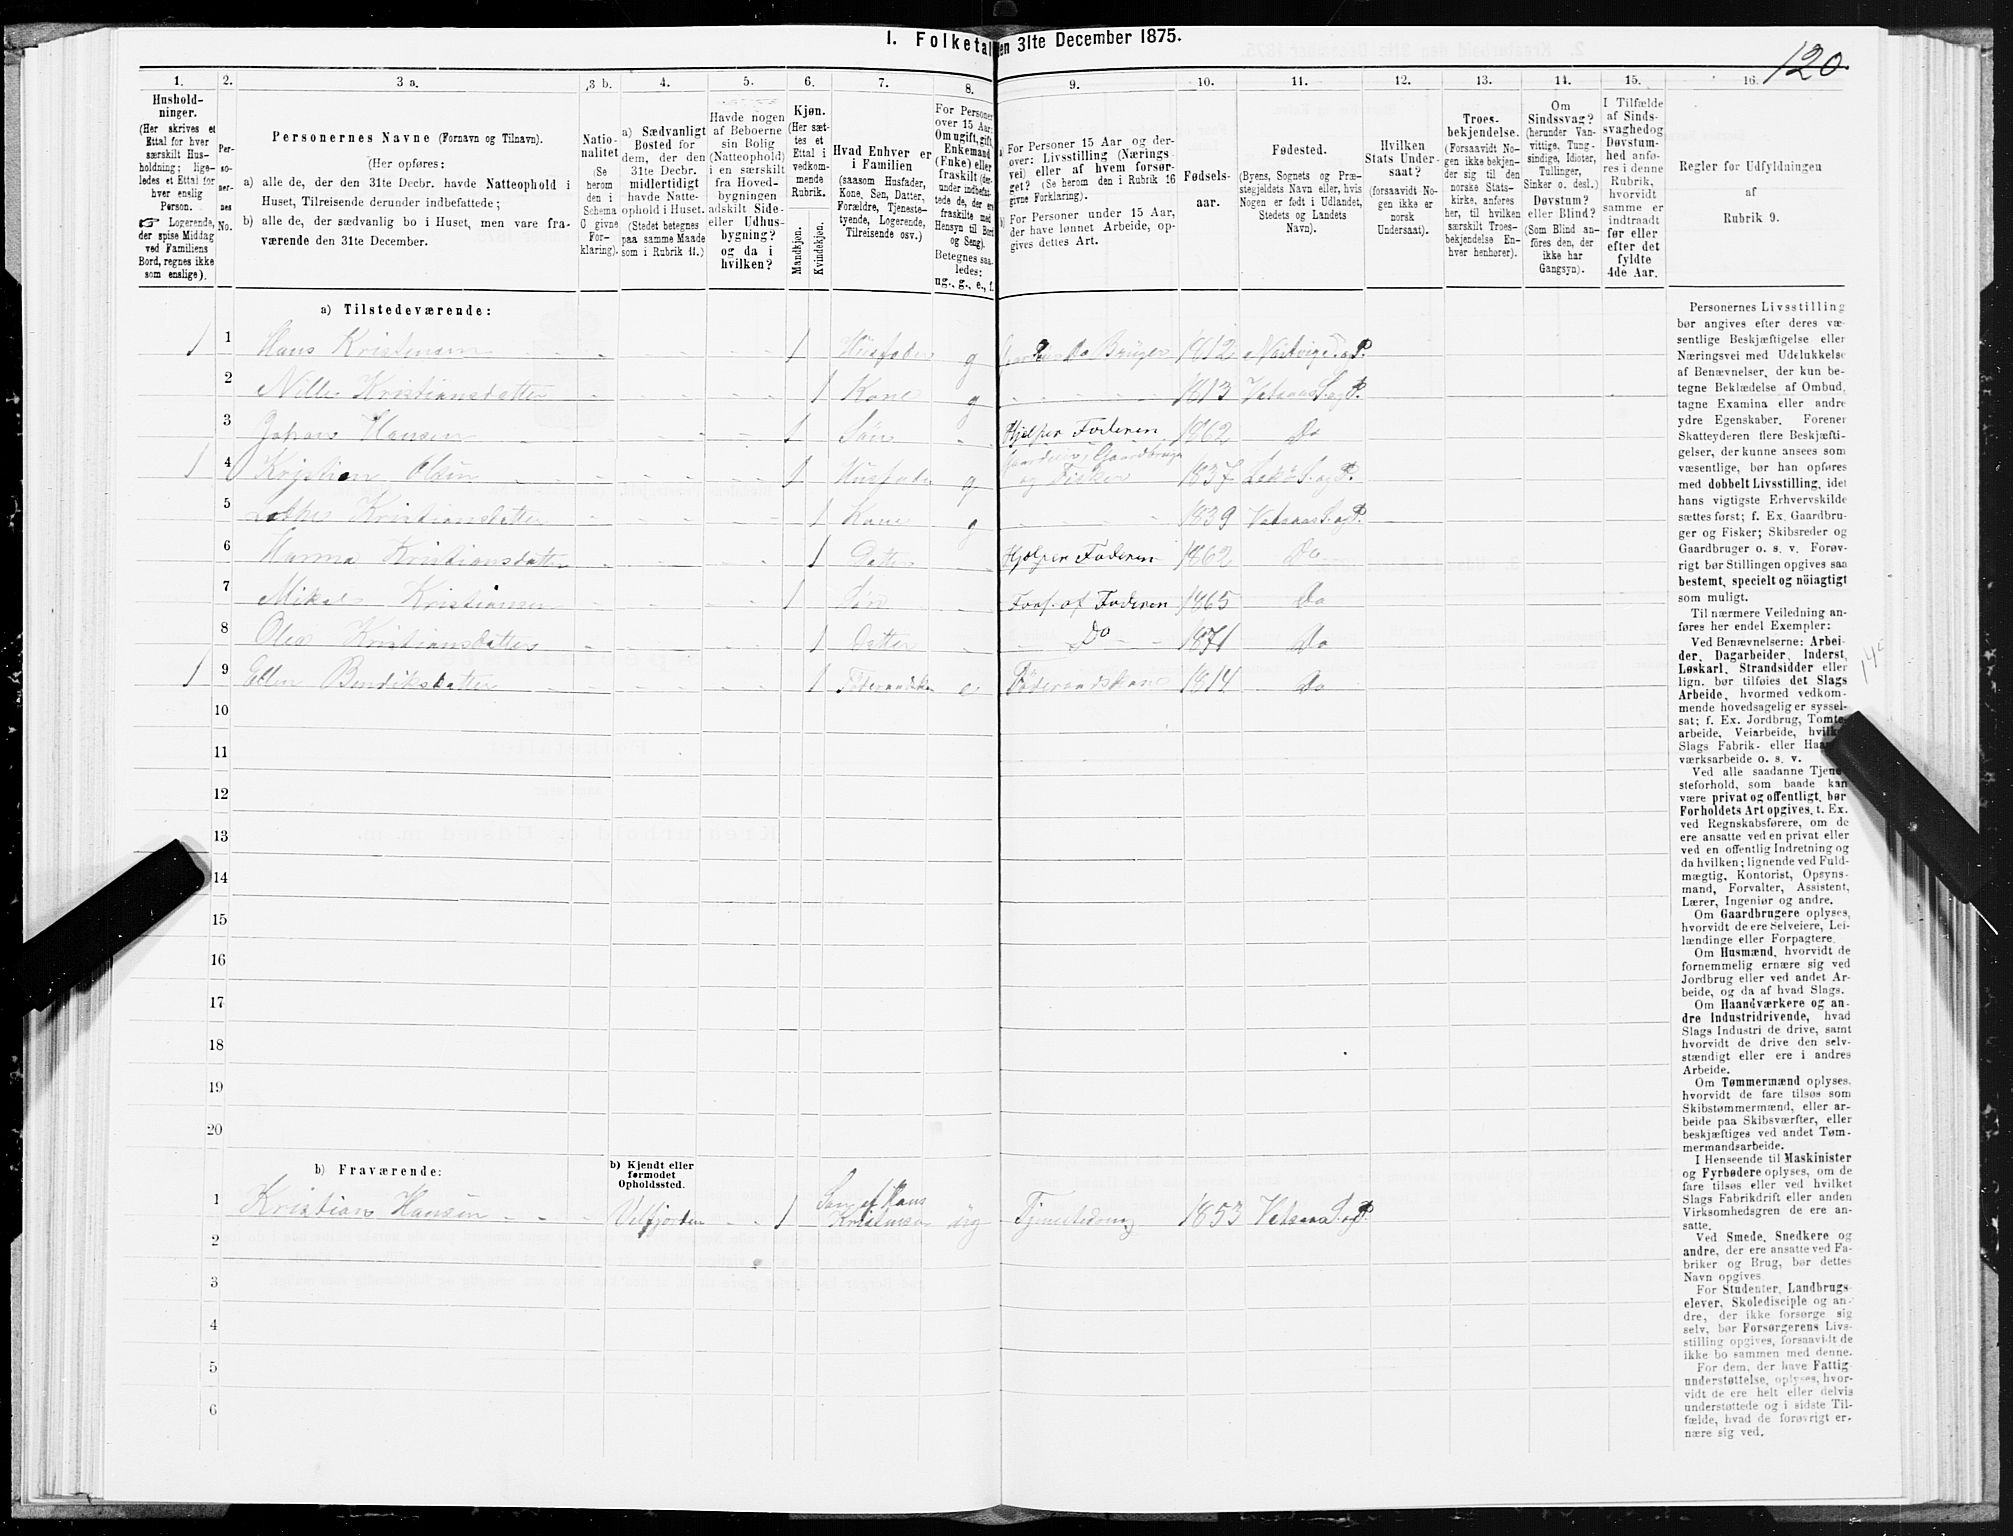 I. Folketal den 31te December 1875.
120.
1. 2. 3 a. 3 b. 4. 5. 6. 7. 8. 9. 10. 11. 12. 13. 14. 15. 16.
Hushold-
ninger.
(Her skrives et
Ettal for hver
særskilt Hus-
holdning; lige-
ledes et Ettal for
hver enslig
Person.
☞ Logerende,
der spise Middag
ved Familiens
Bord, regnes ikke
som enslige).
Per-
so-
ner-
nes
No.
Personernes Navne (Fornavn og Tilnavn).
(Her opføres:
a) alle de, der den 31te Decbr. havde Natteophold i
Huset, Tilreisende derunder indbefattede;
b) alle de, der sædvanlig bo i Huset, men vare fra-
værende den 31te December.
Natio-
nalitet
(Se
herom
den i
Schema
O givne
For-
klaring).
a) Sædvanligt
Bosted for
dem, der den
31te Decbr.
midlertidigt
havde Natte-
ophold i Huset.
(Stedet betegnes
paa samme Maade
som i Rubrik 11.)
Havde nogen
af Beboerne
sin Bolig
(Natteophold)
i en særskilt
fra Hoved-
bygningen
adskilt Side-
eller Udhus-
bygning?
og da i
hvilken?
Kjøn.
(Her sæt-
tes et
Ettal i
vedkom-
mende
Rubrik.
Mandkjøn.
Kvindekjøn.
Hvad Enhver er
i Familien
(saasom Husfader,
Kone, Søn, Datter,
Forældre, Tjeneste-
tyende, Logerende,
Tilreisende osv.)
For Personer
over 15 Aar:
Om ugift, gift,
Enkemand
(Enke) eller
fraskilt (der-
under indbefat-
tede de, der ere
fraskilte med
Hensyn til Bord
og Seng).
Betegnes saa-
ledes:
ug., g., e., f.
a) For Personer 15 Aar og der-
over: Livsstilling (Nærings-
vei) eller af hvem forsør-
get? (Se herom den i Rubrik 16
givne Forklaring).
b) For Personer under 15 Aar,
der have lønnet Arbeide, op-
gives dettes Art.
Fødsels-
aar.
Fødested.
(Byens, Sognets og Præ-
stegjeldets Navn eller, hvis
Nogen er født i Udlandet,
Stedets og Landets
Navn).
Hvilken
Stats Under-
saat?
(forsaavidt No-
gen ikke er
norsk
Undersaat).
Troes-
bekjendelse.
(Forsaavidt No-
gen ikke bekjen-
der sig til den
norske Stats-
kirke, anføres
her, til hvilken
særskilt Troes-
bekjendelse En-
hver henhører).
Om
Sindssvag?
(herunder Van-
vittige, Tung-
sindige, Idioter,
Tullinger,
Sinker o. desl.)
Døvstum?
eller Blind?
(Som Blind an-
føres den, der
ikke har
Gangsyn).
I Tilfælde
af Sinds-
svaghed og
Døvstum-
hed anfø-
res i denne
Rubrik,
hvorvidt
samme er
indtraadt
før eller
efter det
fyldte
4de Aar.
Regler for Udfyldningen
af
Rubrik 9.
a) Tilstedeværende:
1 1 Hans Kristensen 1 Husfader g Bruger 1812 P.
2 Nille Kristiansdatter 1 Kone g 1813 Vatsaas S. og P.
3 Johan Hansen 1 Søn Hjelper Faderen 1862 Do
1 4 Kristian Olsen 1 Husfader g Gaardbruger og Fisker 1837 Lekø S. og P.
5 Kristiansdatter 1 Kone g 1839 Vatsaas S. og P.
6 Hanna Kristiansdatter 1 Datter Hjelper Faderen 1862 Do
7 Mikal Kristiansen 1 Søn Fors. af Faderen 1865 Do
8 Olea Kristiansdatter 1 Datter Do 1871 Do
1 9 Ellen Bendiksdatter 1 e 1814 Do
10
11
12
13
14
15
16
17
18
19
20
b) Fraværende:
b) Kjendt eller
formodet
Opholdssted.
1 Kristian Hansen Velfjorden 1 Søn af Hans Kristensen ug Tjenestedreng 1853 Vatsaas S. og P.
2
3
4
5
6
Personernes Livsstilling
bør angives efter deres væ-
sentlige Beskjæftigelse eller
Næringsvei med Udelukkelse
af Benævnelser, der kun be-
tegne Beklædelse af Ombud,
tagne Examina eller andre
ydre Egenskaber. Forener
Skatteyderen flere Beskjæfti-
gelser, der kunne ansees som
væsentlige, bør han opføres
med dobbelt Livsstilling, idet
hans vigtigste Erhvervskilde
sættes først; f. Ex. Gaardbru-
ger og Fisker; Skibsreder og
Gaardbruger o. s. v. Forøv-
rigt bør Stillingen opgives saa
bestemt, specielt og nöiagtigt
som muligt.
Til nærmere Veiledning an-
føres her endel Exempler:
Ved Benævnelserne: Arbei-
der, Dagarbeider, Inderst,
Løskarl, Strandsidder eller
lign. bør tilføies det Slags
Arbeide, hvormed vedkom-
mende hovedsagelig er syssel-
sat; f. Ex. Jordbrug, Tomte-
arbeide, Veiarbeide, hvilket
Slags Fabrik- eller Haand-
værksarbeide o. s. v.
Ved alle saadanne Tjene-
steforhold, som baade kan
være privat og offentligt, bør
Forholdets Art opgives, t. Ex.
ved Regnskabsførere, om de
ere ansatte ved en privat eller
ved en offentlig Indretning og
da hvilken; lignende ved Fuld-
mægtig, Kontorist, Opsyns-
mand, Forvalter, Assistent,
Lærer, Ingeniør og andre.
Om Gaardbrugere oplyses,
hvorvidt de ere Selveiere, Lei-
lændinge eller Forpagtere.
Om Husmænd, hvorvidt de
fornemmelig ernære sig ved
Jordbrug eller ved andet Ar-
beide, og da af hvad Slags.
Om Haandværkere og an-
dre Industridrivende, hvad
Slags Industri de drive, samt
hvorvidt de drive den selv-
stændigt eller ere i andres
Arbeide.
Om Tømmermænd oplyses,
hvorvidt de fare tilsøs som
Skibstømmermænd, eller ar-
beide paa Skibsværfter, eller
beskjæftiges ved andet Tøm-
mermandsarbeide.
I Henseende til Maskinister
og Fyrbødere oplyses, om de
fare tilsøs eller ved hvilket
Slags Fabrikdrift eller anden
Virksomhedsgren de ere an-
satte.
Ved Smede, Snedkere og
andre, der ere ansatte ved Fa-
briker og Brug, bør dettes
Navn opgives
For Studenter, Landbrugs-
elever, Skoledisciple og an-
dre, der ikke forsørge sig
selv, bør Forsørgerens Livs-
stilling opgives, forsaavidt de
ikke bo sammen med denne.
For dem, der have Fattig-
understøttelse, oplyses, hvor-
vidt de ere helt eller delvis
understøttede og i sidste Til-
fælde, hvad de forøvrigt er-
nære sig ved.